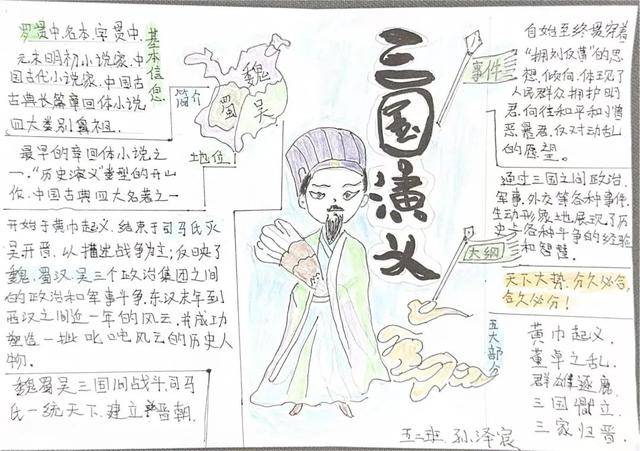 罗贯中,名本,字贯中,
元末明初小说家,中
国古代小说家,中国古
古典长篇章回体小说
四大类别鼻祖.
基本信息
简介
地位
魏
蜀
吴
最早的章回体小说之
一,“历史演义”类型的开山
作,中国古典四大名著之一
开始于黄巾起义,结束于司马氏灭
吴开晋,以描述战争为主,反映了
魏、蜀汉、吴三个政治集团之间
的政治和军事斗争,东汉末年到
西汉之间近一年的风云,并成功
塑造一批叱咤风云的历史人
物.
魏蜀吴三国间战斗,司马
氏一统天下,建立晋朝.
三国演义
事件
自始至终贯穿着
“拥刘反曹”的思
想,倾向,体现了
人民群众拥护明
君,向往和平和
恶暴君,反对动乱
的愿望。
通过三国之间政治,
军事、外交等各种事件,
生动形象地展现了历
史上各种斗争的经验
和智慧.
大纲
天下大势,分久必合,
合久必分!
五大部分
黄巾起义,
董卓之乱,
群雄逐鹿,
三国鼎立,
三家归晋.
五二班 孙泽宸